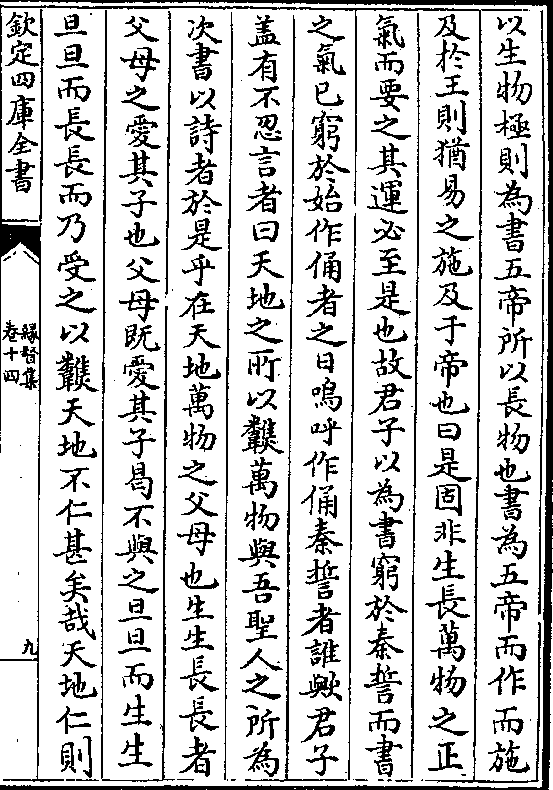 以生物極則為書五帝所以長物也書為五帝而作而施
及於王則猶易之施及于帝也曰是固非生長萬物之正
氣而要之其運必至是也故君子以為書窮於秦誓而書
之氣已窮於始作俑者之日嗚呼作俑秦誓者誰歟君子
蓋有不忍言者曰天地之所以䕼萬物與吾聖人之所為
次書以詩者於是乎在天地萬物之父母也生生長長者
父母之愛其子也父母既愛其子曷不與之旦旦而生生
旦旦而長長而乃受之以䕼天地不仁甚矣哉天地仁則
欽定四庫全書
緣督集
卷十四
九